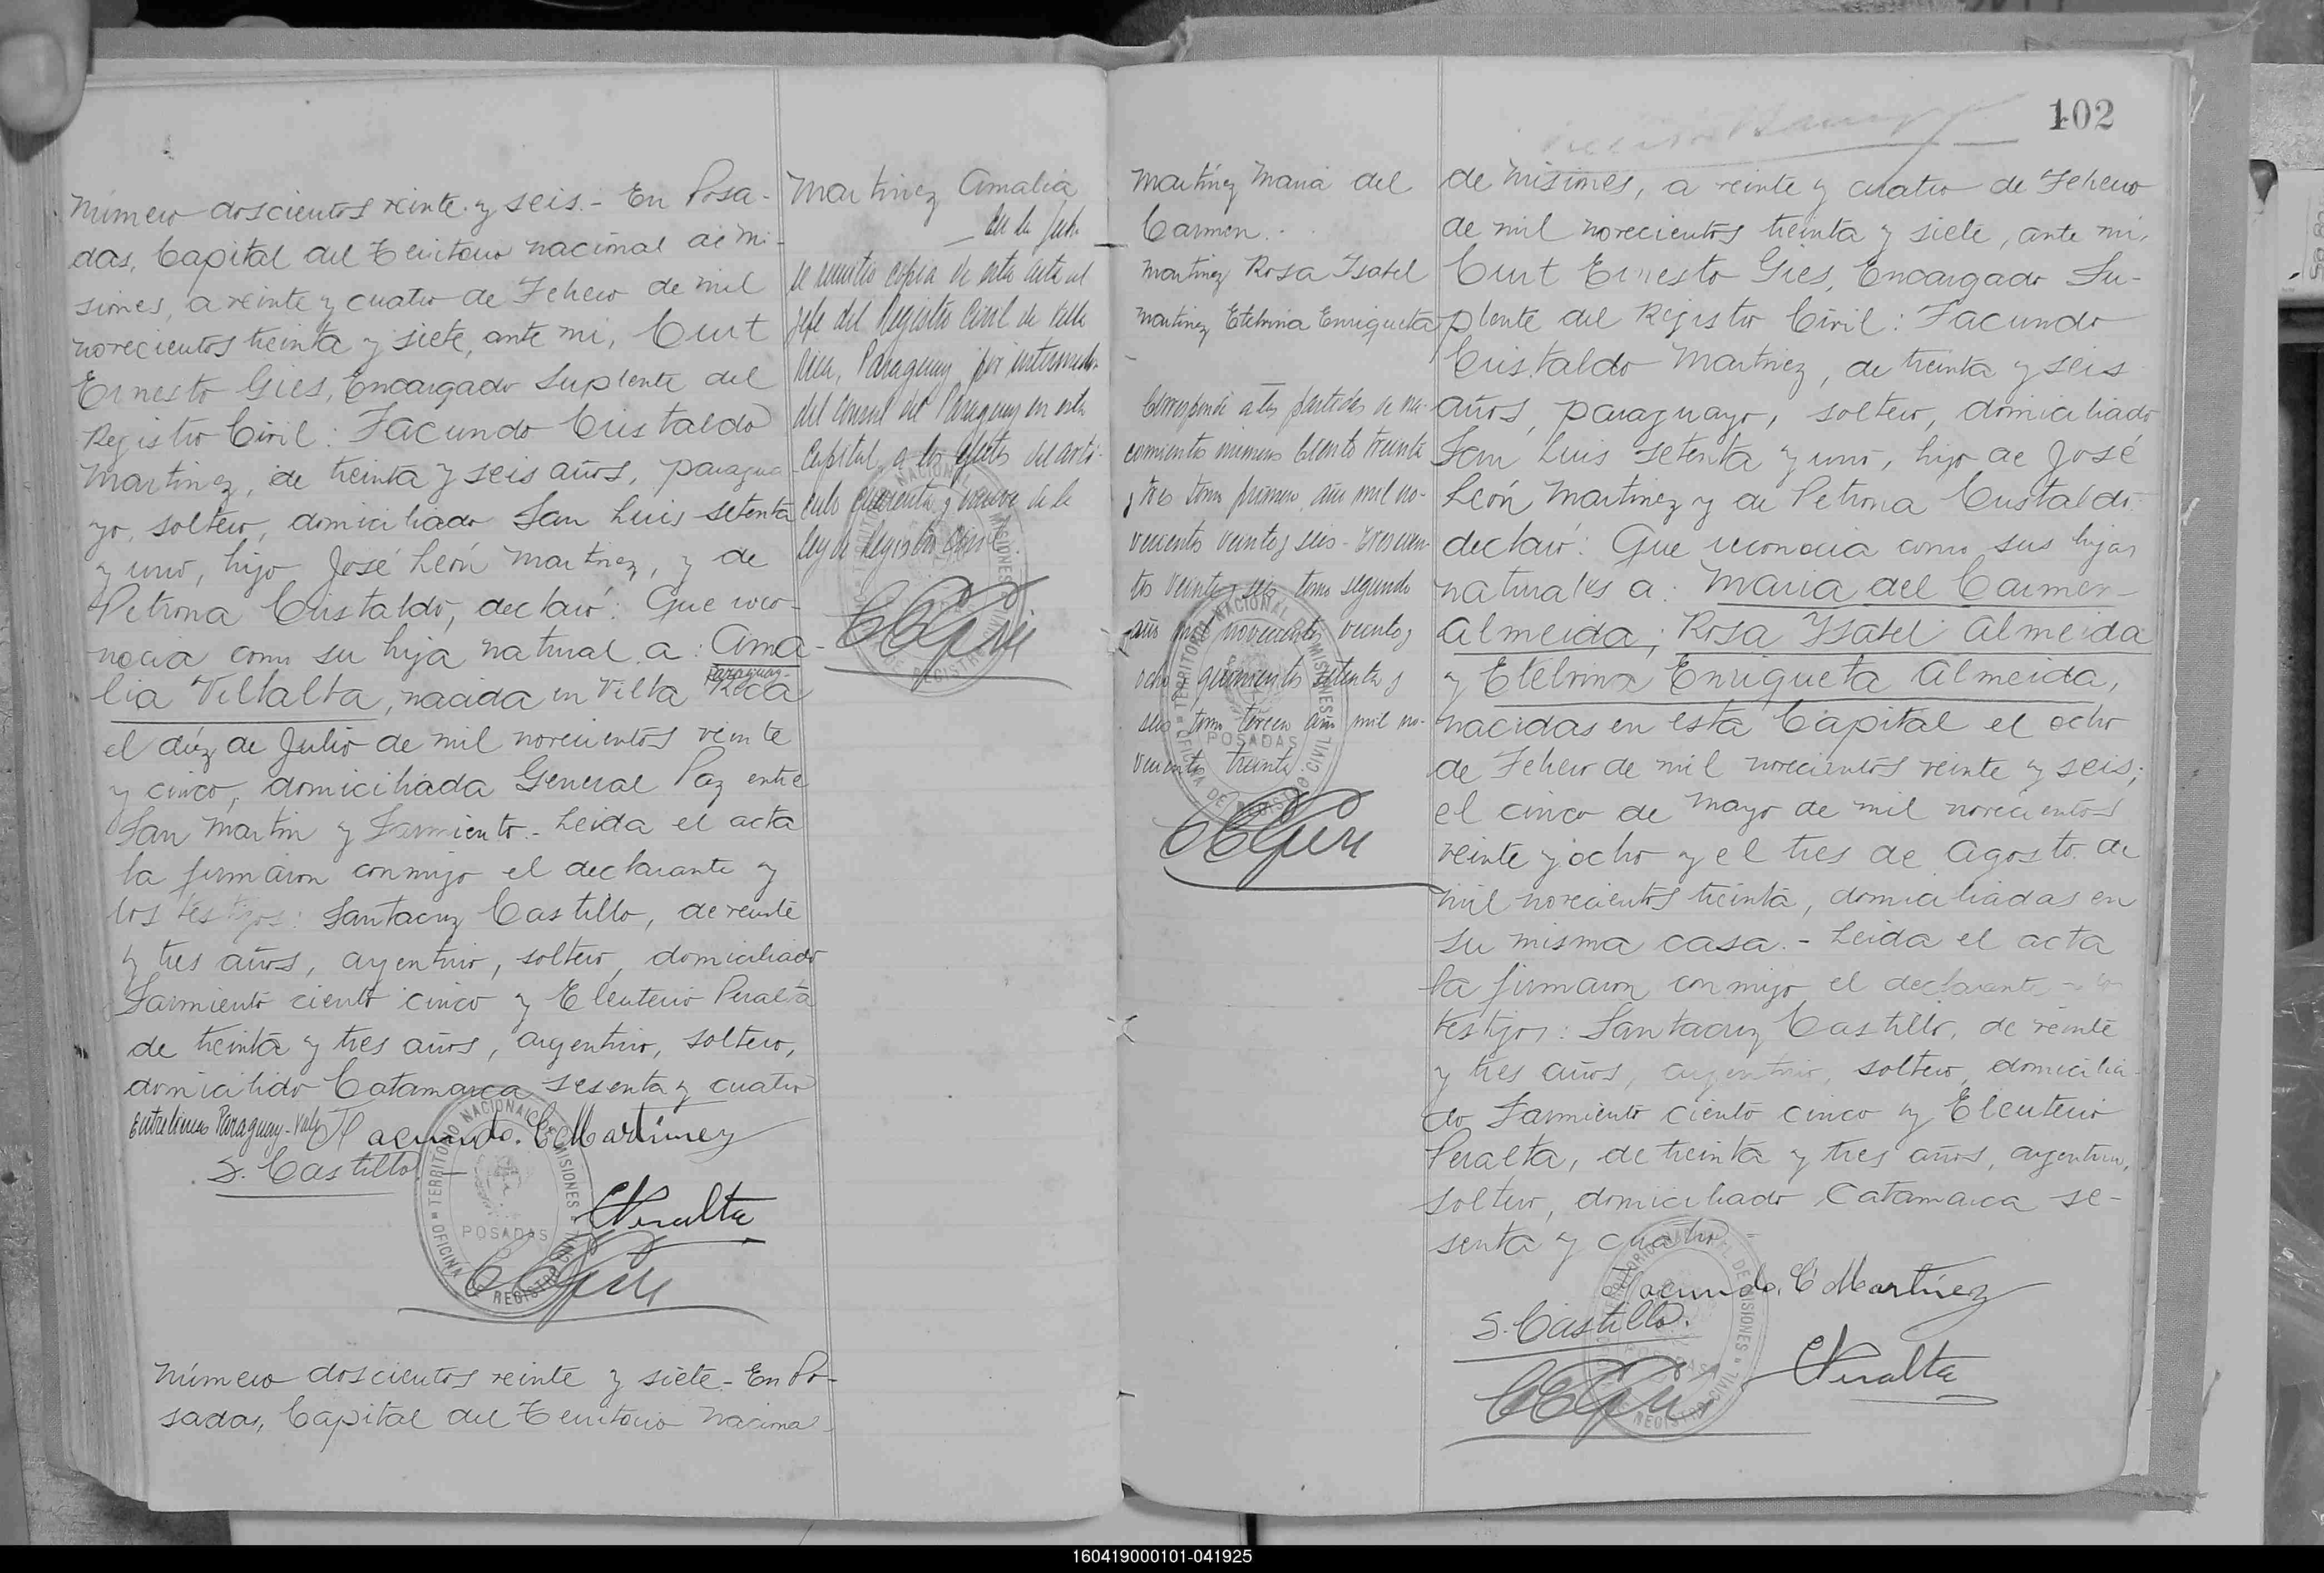 Número doscientos veinte y seis.- En Posa-
das, Capital del Territorio nacional de Mi-
siones, a veinte y cuatro de Febrero de mil
novecientos treinta y siete, ante mi, Curt
Ernesto Gies, Encargado Suplente del
Registro Civil: Facundo Cristaldo
Martinez, de treinta y seis años, paragua
yo, soltero, domiciliado San Luis setenta
y uno, hijo José León Martinez, y de
Petrona Cristaldo, declaró: Que reco-
nocia como su hija natural a: Ama-
paraguay-
lia Villalta, nacida en Villa Rica
el diéz de Julio de mil novecientos veinte
y cinco, domiciliada General Paz entre
San Martin y Sarmiento.- Leida el acta
la firmaron conmigo el declarante y
los testigos: Santacruz Castillo, de veinte
y tres años, argentino, soltero, domiciliado
Sarmiento ciento cinco y Eleuterio Peralta
de treinta y tres años, argentino, soltero,
domicilido Catamarca sesenta y cuatro
Entrelineas Paraguay-Vale
Facundo. C. Martinez
S. Castillo
EPeralta
TERRITORIO NACIONAL DE MISIONES
POSADAS
OFICINA DE REGISTRO CIVIL
Número doscientos veinte y siete.- En Po-
sadas, Capital del Territorio nacional
Martinez Amalia
En la fecha
se remitio copia de esta acta al
jefe del Registro Civil de Villa
Rica, Paraguay por intermedio
del Consul del Paraguay en esta
Capital, a los efectos del arti-
culo cuarenta y nueve de la
ley de Registro Civil.
102
Martínez Maria del
Carmen.
Martinez Rosa Ysabel
Martinez Etelvina Enriqueta
Corresponde a las partidas de na-
cimiento número ciento treinta
y tres tomo primero año mil no-
vecientos veinte y seis - trescien-
tos veinte y seis tomo segundo
año mil novecientos veinte y
ocho quinientos setenta y
seis tomo tercero año mil no-
vecientos treinta
TERRITORIO NACIONAL DE MISIONES
POSADAS
OFICINA DE REGISTRO CIVIL
de Misiones, a veinte y cuatro de Febrero
de mil novecientos treinta y siete, ante mi,
Curt Ernesto Gies, Encargado Su-
plente del Registro Civil: Facundo
Cristaldo Martinez, de treinta y seis
años, paraguayo, soltero, domiciliado
San Luis setenta y uno, hijo de José
León Martinez y de Petrona Cristaldo
declaró: Que reconocia como sus hijas
naturales a: Maria del Carmen
Almeida; Rosa Ysabel Almeida
y Etelvina Enriqueta Almeida,
nacidas en esta Capital el ocho
de Febrero de mil novecientos veinte y seis;
el cinco de Mayo de mil novecientos
veinte y ocho y el tres de Agosto de
mil novecientos treinta, domiciliadas en
su misma casa.- Leida el acta
la firmaron conmigo el declarante y los
testigos: Santacruz Castillo, de veinte
y tres años, argentino, soltero, domicilia-
do Sarmiento ciento cinco y Eleuterio
Peralta, de treinta y tres años, argentino,
soltero, domiciliado Catamarca se-
senta y cuatro
Facundo. C Martínez
S. Castillo.
EPeralta
160419000101-041925